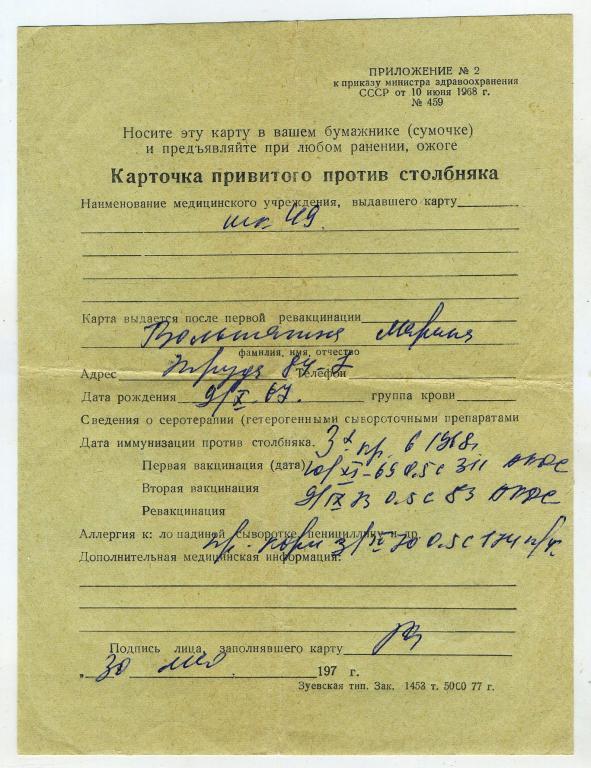 ПРИЛОЖЕНИЕ № 2
к приказу министра здравоохранения
СССР от 10 июня 1968 г.
№ 459
Носите эту карту в вашем бумажнике (сумочке)
и предъявляйте при любом ранении, ожоге
Карточка привитого против столбняка
Наименование медицинского учреждения, выдавшего карту
шк. 49.
Карта выдается после первой ревакцинации
Марина
фамилия, имя, отчество
Адрес Труда Телефон
Дата рождения 9/X. 67. группа крови
Сведения о серотерапии (гетерогенными сывороточными препаратами
Дата иммунизации против столбняка. 3х пр. в 1968г
Первая вакцинация (дата) 10/XI-69 0.5 с 311 АКДС
Вторая вакцинация 9/IX 73 0.5 с 83 АКДС
Ревакцинация
Аллергия к: лошадиной сыворотке, пенициллину и др.
0.5 с 174
Дополнительная медицинская информация:
Подпись лица, заполнявшего карту
„30 мая 197 г.
Зуевская тип. Зак. 1453 т. 5000 77 г.